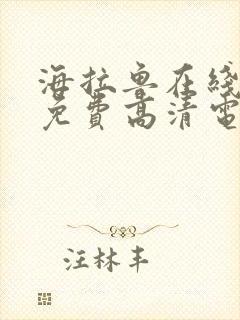 海拉鲁在线
免费高清电
汪林丰